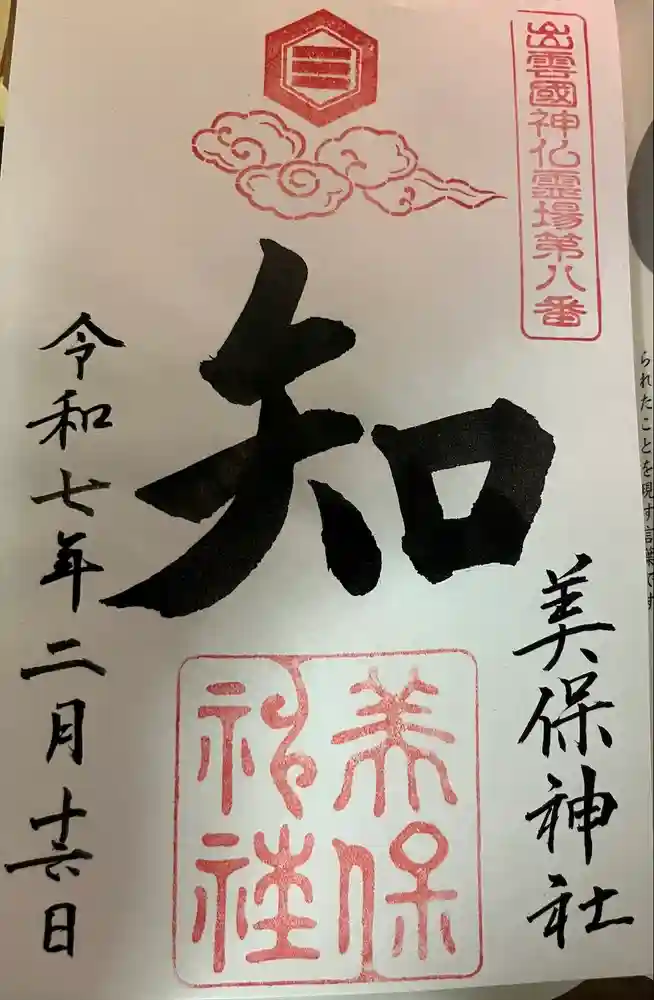 出雲國神仏霊場第八番
知
美保神社
美保神社
令和七年二月十六日
られたことを現す言葉です